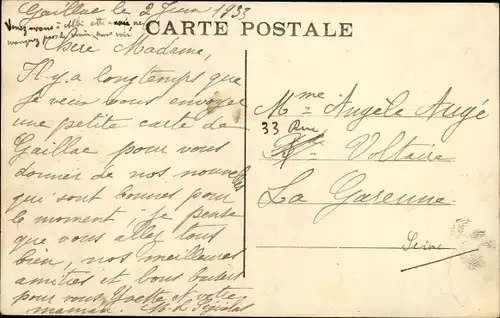 Gaillac le 2 Juin 1933
Venez-vous à Albi cette année, ne
manquez pas de venir nous voir
CARTE POSTALE
Chère Madame,
Il y a longtemps que
je veux vous envoyer
une petite carte de
Gaillac pour vous
donner de nos nouvelles
qui sont bonnes pour
le moment, je pense
que vous allez tous
bien, nos meilleures
amitiés et bons baisers
pour vous Yvette et votre
maman.
Mme Angèle Augé
33 Rue
Voltaire
La Garenne
Seine